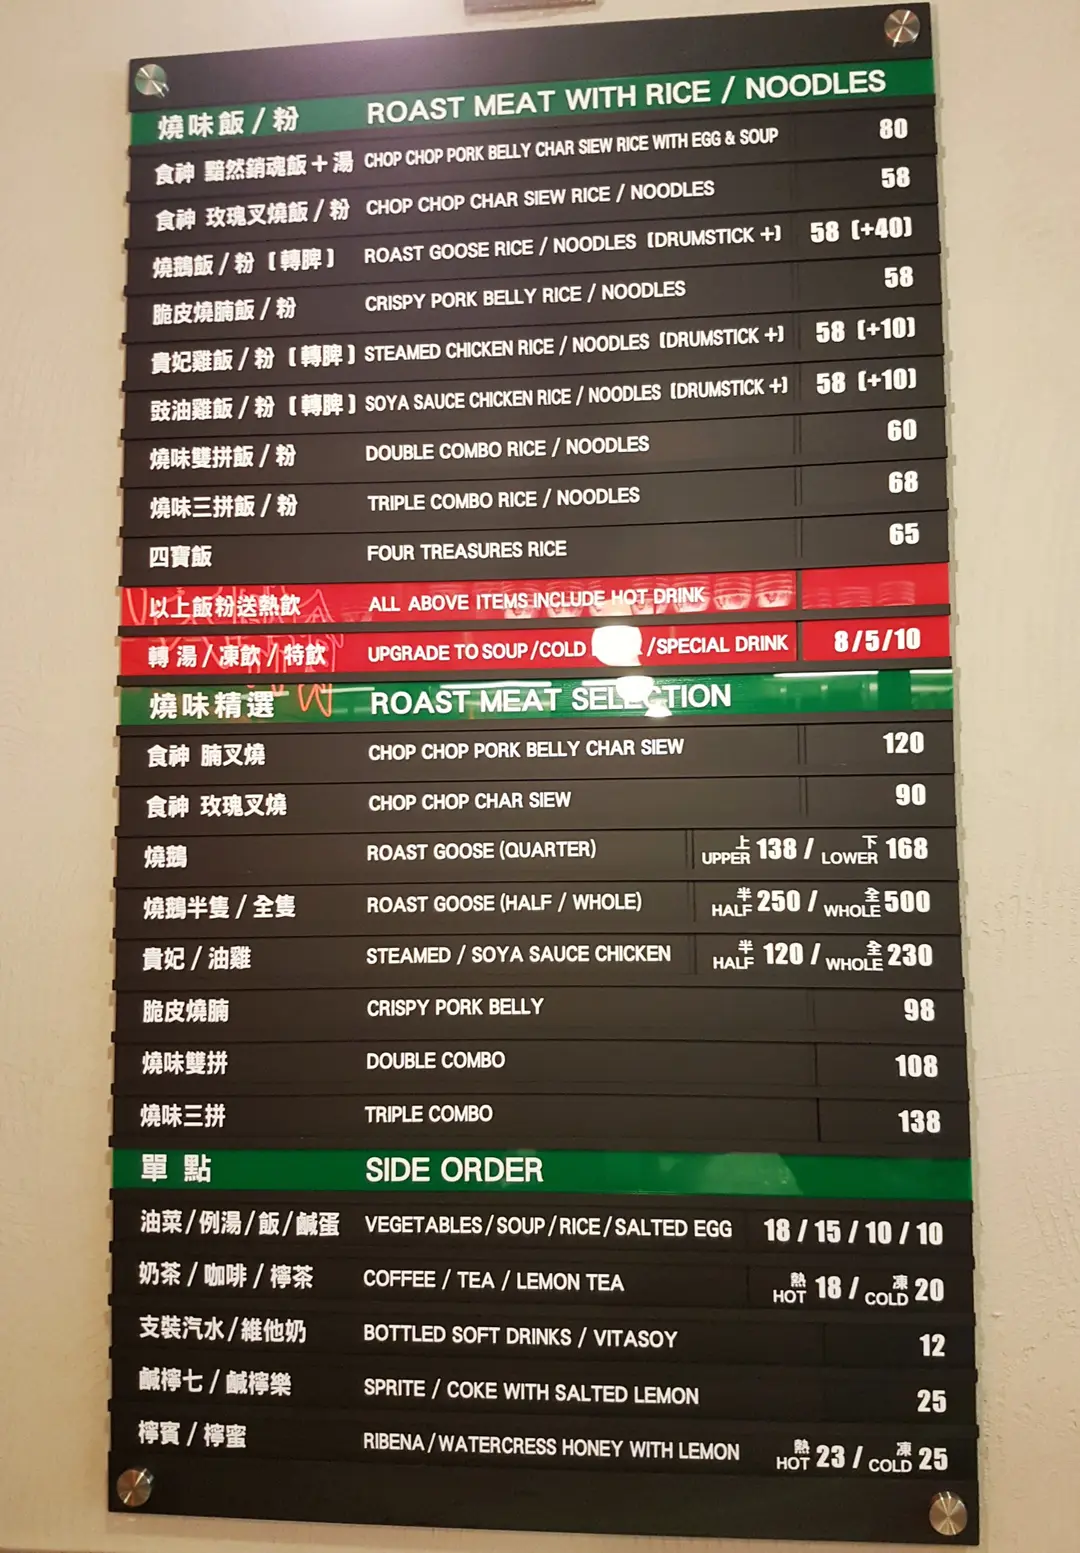 燒味飯/粉 ROAST MEAT WITH RICE / NOODLES
食神 黯然銷魂飯+湯 CHOP CHOP PORK BELLY CHAR SIEW RICE WITH EGG & SOUP 80
食神 玫瑰叉燒飯/粉 CHOP CHOP CHAR SIEW RICE / NOODLES 58
燒鵝飯/粉 (轉脾) ROAST GOOSE RICE / NOODLES (DRUMSTICK +) 58 (+40)
脆皮燒腩飯/粉 CRISPY PORK BELLY RICE / NOODLES 58
貴妃雞飯/粉 (轉脾) STEAMED CHICKEN RICE / NOODLES (DRUMSTICK +) 58 (+10)
豉油雞飯/粉 (轉脾) SOYA SAUCE CHICKEN RICE / NOODLES (DRUMSTICK +) 58 (+10)
燒味雙拼飯/粉 DOUBLE COMBO RICE / NOODLES 60
燒味三拼飯/粉 TRIPLE COMBO RICE / NOODLES 68
四寶飯 FOUR TREASURES RICE 65
以上飯粉送熱飲 ALL ABOVE ITEMS INCLUDE HOT DRINK
轉 湯/凍飲/特飲 UPGRADE TO SOUP/COLD /SPECIAL DRINK 8/5/10
燒味精選 ROAST MEAT SELECTION
食神 腩叉燒 CHOP CHOP PORK BELLY CHAR SIEW 120
食神 玫瑰叉燒 CHOP CHOP CHAR SIEW 90
燒鵝 ROAST GOOSE (QUARTER) 上 UPPER 138 / 下 LOWER 168
燒鵝半隻/全隻 ROAST GOOSE (HALF / WHOLE) 半 HALF 250 / 全 WHOLE 500
貴妃/油雞 STEAMED / SOYA SAUCE CHICKEN 半 HALF 120 / 全 WHOLE 230
脆皮燒腩 CRISPY PORK BELLY 98
燒味雙拼 DOUBLE COMBO 108
燒味三拼 TRIPLE COMBO 138
單 點 SIDE ORDER
油菜/例湯/飯/鹹蛋 VEGETABLES/SOUP/RICE/SALTED EGG 18 / 15 / 10 / 10
奶茶/咖啡/檸茶 COFFEE / TEA / LEMON TEA 熱 HOT 18 / 凍 COLD 20
支裝汽水/維他奶 BOTTLED SOFT DRINKS / VITASOY 12
鹹檸七/鹹檸樂 SPRITE / COKE WITH SALTED LEMON 25
檸賓/檸蜜 RIBENA/WATERCRESS HONEY WITH LEMON 熱 HOT 23 / 凍 COLD 25